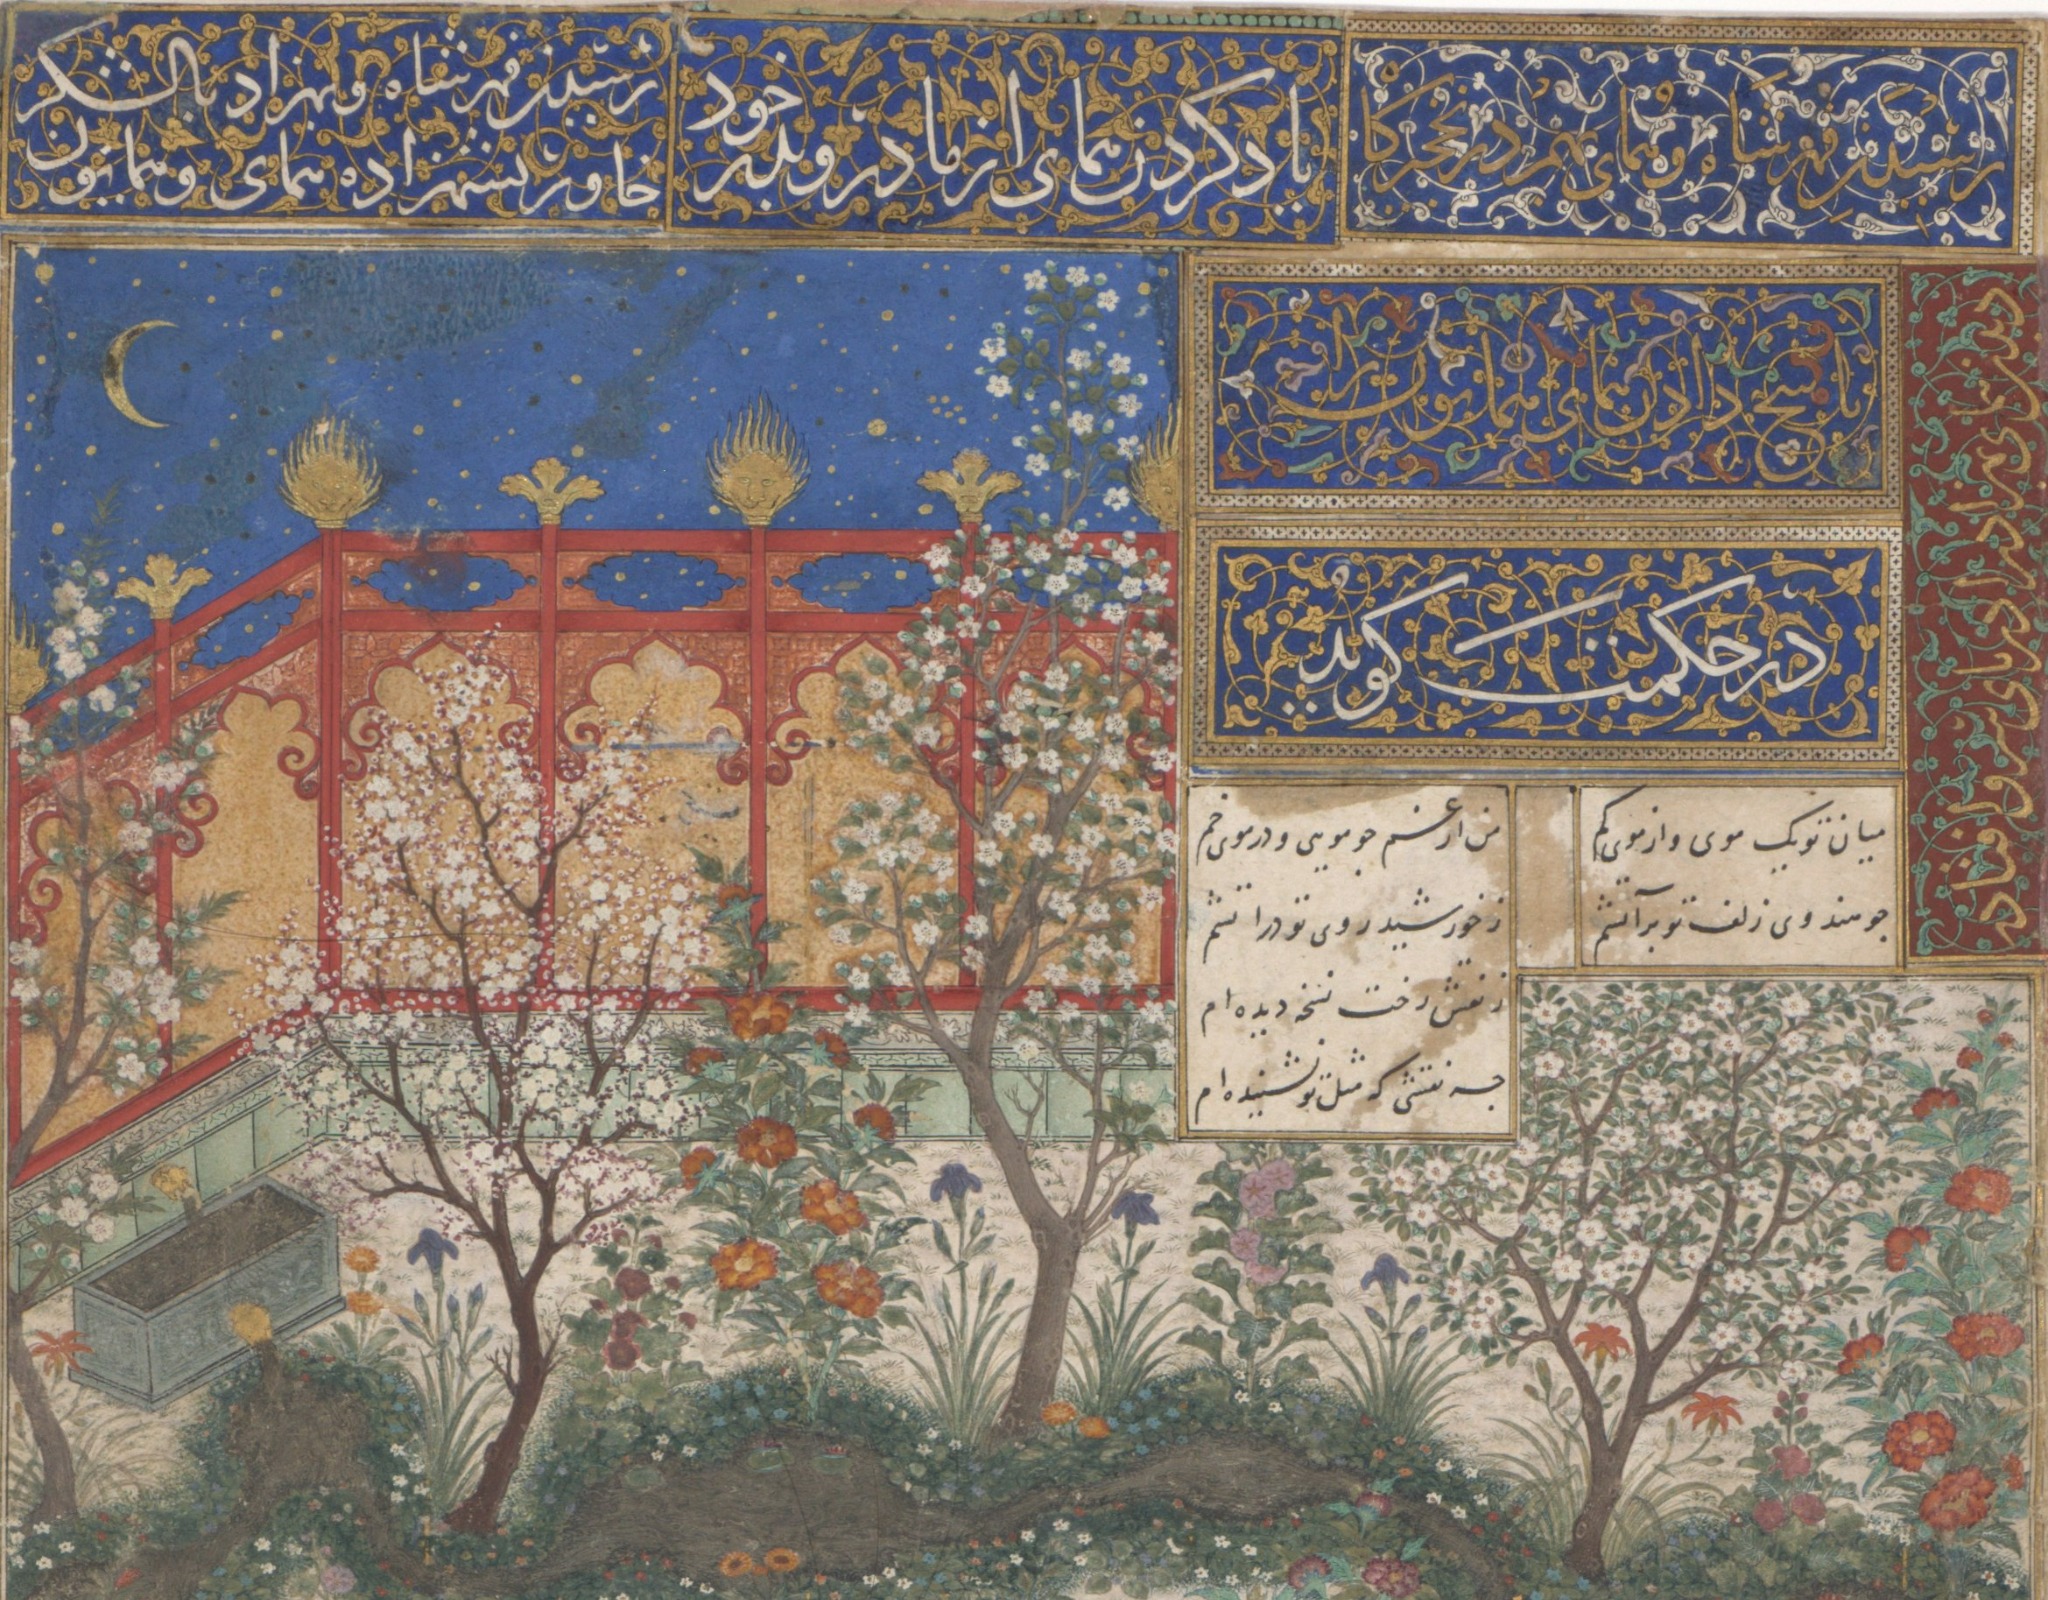 رسیدن فهر شاه و همای بهم در نخجیرگاه
یاد کردن همای از مادر و پدر خود
رسیدن فهر شاه و بهزاد با لشکر
خاور بشهزاده همای و همایون
پاسخ دادن همای همایون را
در حکمت گوید
میان تو یک موی و از موی کم
من از غم چو مویی و در موی خم
چو هندوی زلف تو بر آتشم
ز خورشید روی تو در آتشم
ز نقش رخت نسخه دیده‌ام
چه نقشی که مثل تو نشنیده‌ام